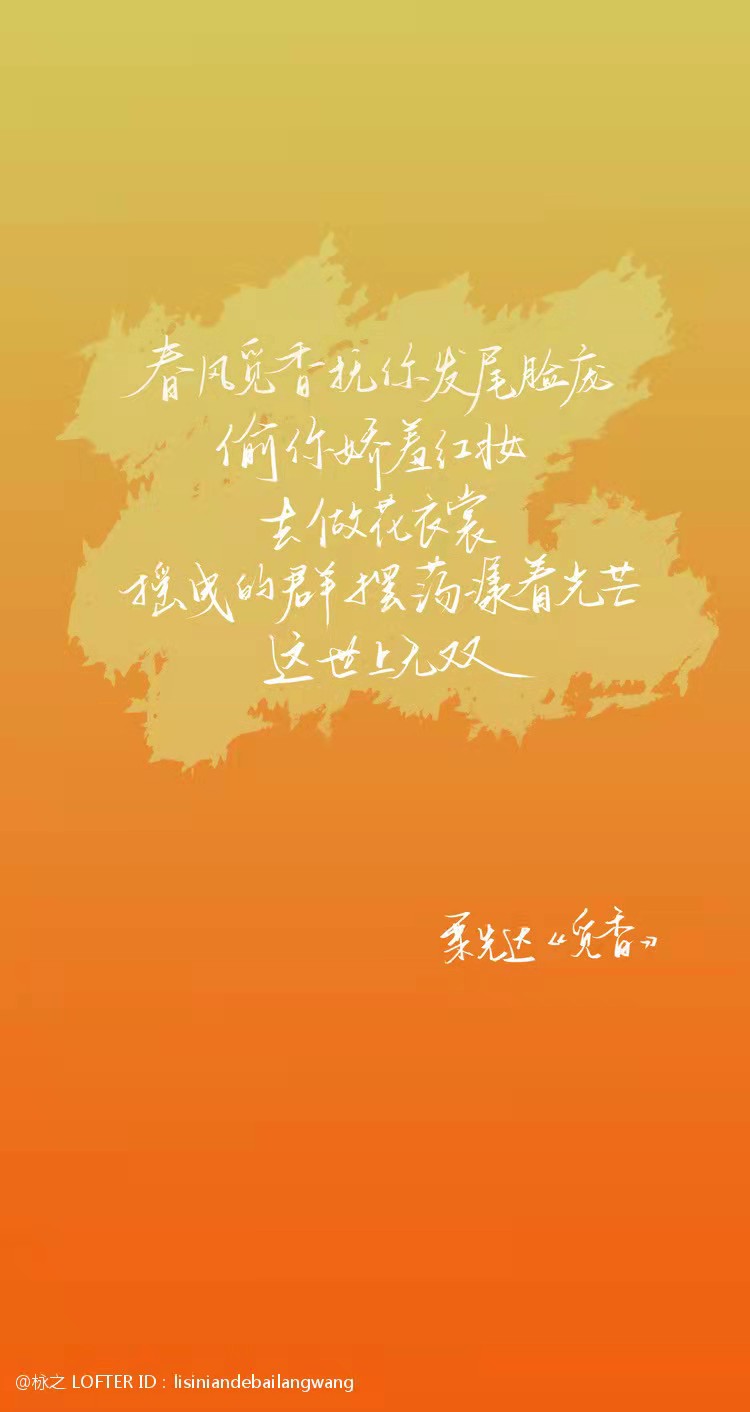 春风觅香抚你发尾脸庞
偷你娇羞红妆
去做花衣裳
摇曳的群摆荡漾着光芒
这世上无双
栗先达《觅香》
@栐之 LOFTER ID：lisiniandebailangwang